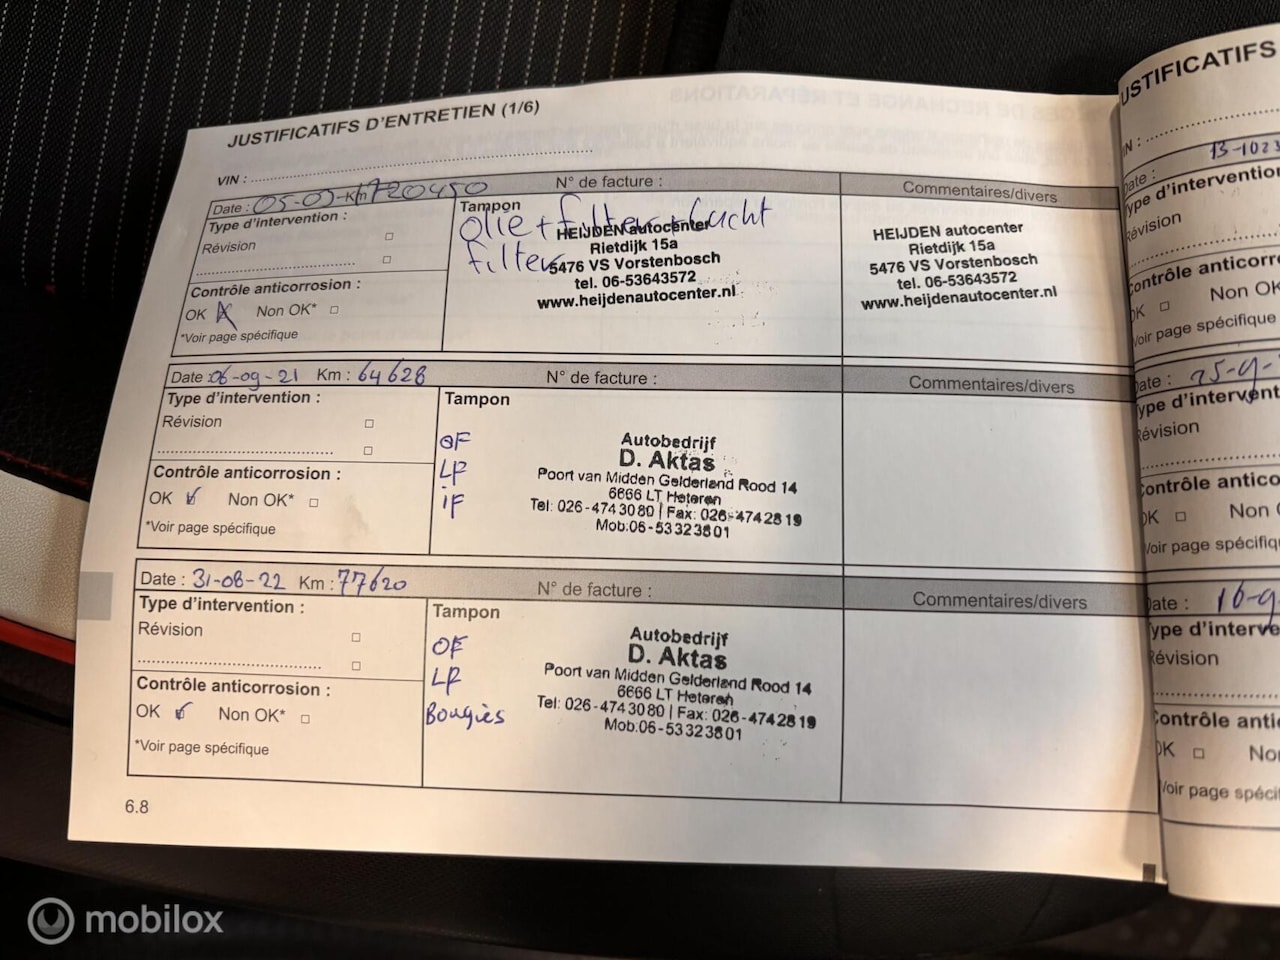 JUSTIFICATIFS D'ENTRETIEN (1/6)
VIN :
Date : 05-03- Km 120450 N° de facture : Commentaires/divers
Type d'intervention :
Révision
Contrôle anticorrosion :
OK Non OK*
*Voir page spécifique
Tampon
olie + filter + lucht
filter
HEIJDEN autocenter
Rietdijk 15a
5476 VS Vorstenbosch
tel. 06-53643572
www.heijdenautocenter.nl
HEIJDEN autocenter
Rietdijk 15a
5476 VS Vorstenbosch
tel. 06-53643572
www.heijdenautocenter.nl
Date : 06-09-21 Km : 64628 N° de facture : Commentaires/divers
Type d'intervention :
Révision
Contrôle anticorrosion :
OK Non OK*
*Voir page spécifique
Tampon
OF
LF
iF
Autobedrijf
D. Aktas
Poort van Midden Gelderland Rood 14
6666 LT Heteren
Tel: 026-4743080 | Fax: 026-4742819
Mob:06-53323801
Date : 31-08-22 Km : 77620 N° de facture : Commentaires/divers
Type d'intervention :
Révision
Contrôle anticorrosion :
OK Non OK*
*Voir page spécifique
Tampon
OF
LF
Bougiès
Autobedrijf
D. Aktas
Poort van Midden Gelderland Rood 14
6666 LT Heteren
Tel: 026-4743080 | Fax: 026-4742819
Mob:06-53323801
6.8
USTIFICATIFS
IN :
Date : 13-1023
ype d'intervention
évision
ontrôle anticorro
OK Non OK
Voir page spécifique
Date : 25-9-
ype d'intervent
évision
ontrôle antico
OK Non
Voir page spécifiq
Date : 16-9
ype d'interve
évision
ontrôle anti
OK No
Voir page spéci
mobilox